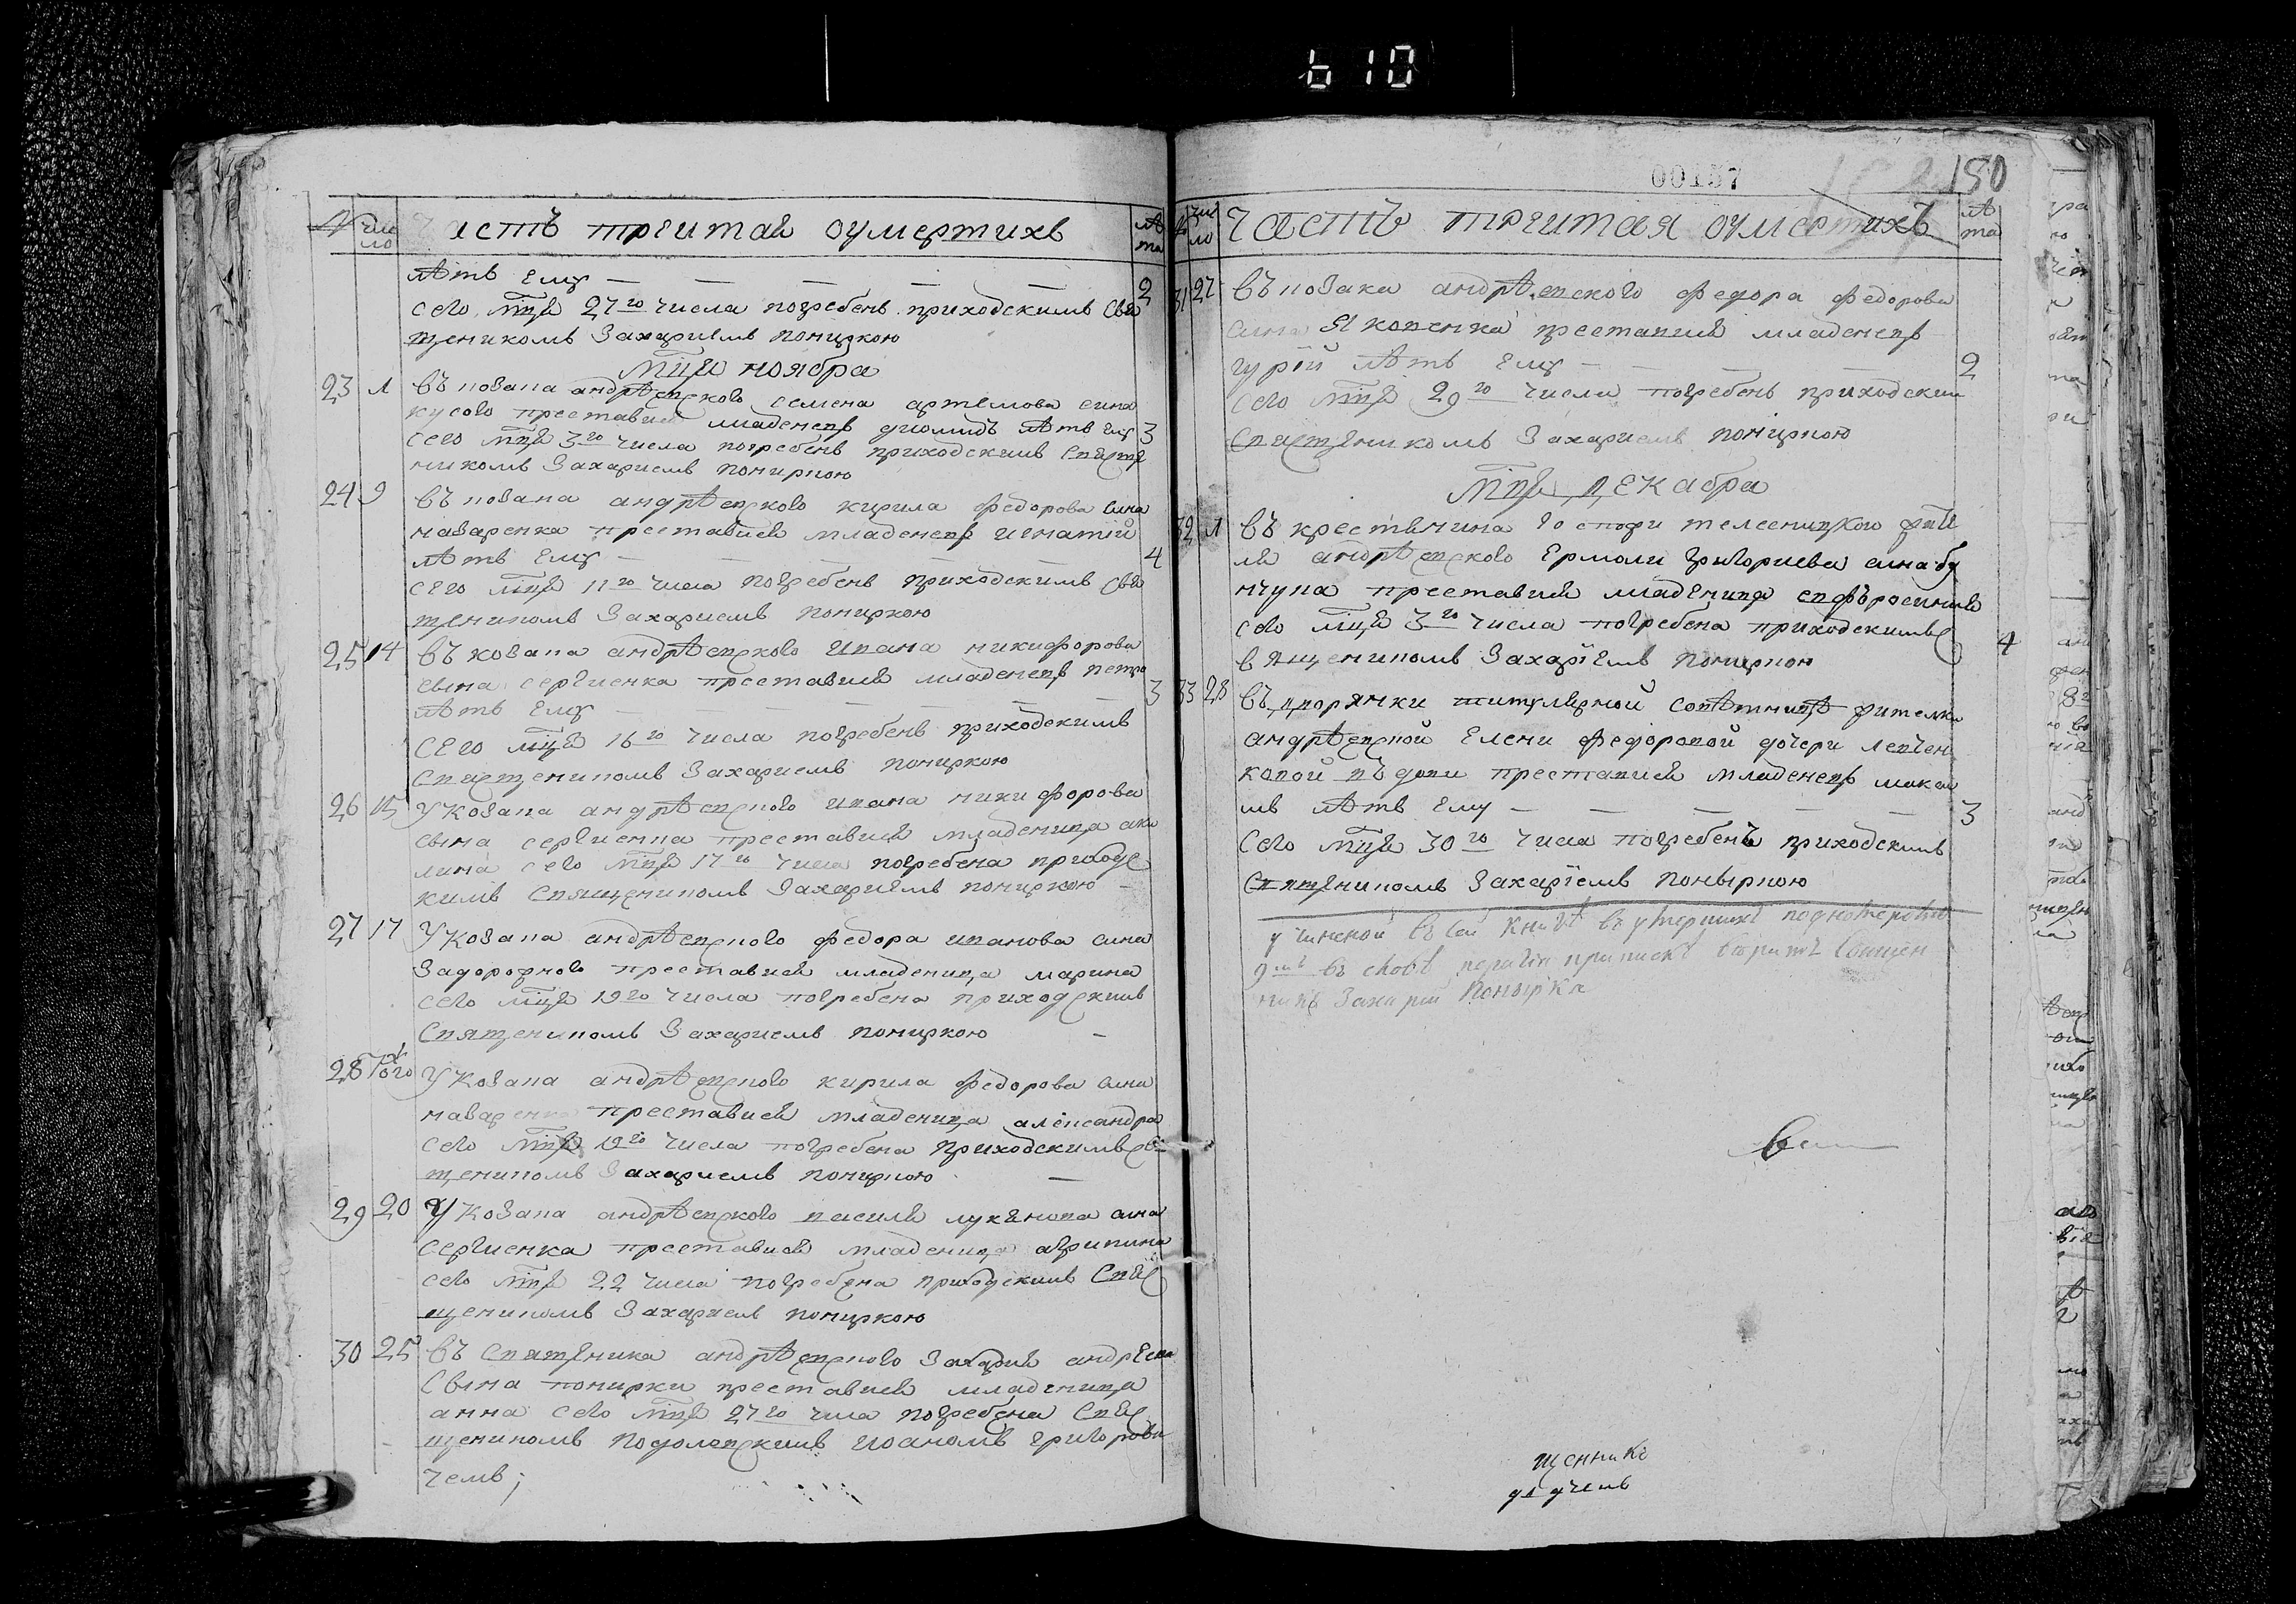 610
№ чи
сло
Часть третая оумертихъ
лѣ
та
лѣтъ ему — — — — — 2
сего мцѧ 27го числа погребенъ приходскимъ свѧ
щеникомъ Захариемъ Пониркою
Мцѧ ноября
23 1 въ козака андрѣевского семена артемова сина
кусого преставися младенецъ диомидъ лѣтъ ему 3
сего мцѧ 3го числа погребенъ приходскимъ свяще
никомъ Захариемъ Пониркою
24 9 въ козака андрѣевского кирила федорова сина
назаренка преставися младенецъ игнатий
лѣтъ ему — — — — 4
сего мцѧ 11го числа погребенъ приходскимъ свѧ
щеникомъ Захариемъ Пониркою
25 14 въ козака андрѣевского ивана никифорова
сына сергиенка преставися младенецъ петро
лѣтъ ему — — — — 3
сего мцѧ 16го числа погребенъ приходскимъ
свѧщеникомъ Захариемъ Пониркою
26 15 у козака андрѣевского ивана никифорова
сына сергиенка преставися младеница аки
лина сего мцѧ 17го числа погребена приходс
кимъ священикомъ Захариемъ Пониркою —
27 17 у козака андрѣевского федора иванова сина
Задорожного преставися младеница марина
сего мцѧ 19го числа погребена приходскимъ
священикомъ Захариемъ Пониркою —
28 у козака андрѣевского кирила федорова сина
назаренка преставися младеница александра
сего мцѧ 19го числа погребена приходскимъ свѧ
щеникомъ Захариемъ Пониркою —
29 20 у козака андрѣевского василя лукянова сина
сергиенка преставися младеница агрипина
сего мцѧ 22 числа погребена приходскимъ свѧ
щеникомъ Захариемъ Пониркою
30 25 въ священика андрѣевского Захария андреева
сына понирки преставися младеница
анна сего мцѧ 27го числа погребена свѧ
щеникомъ подоловскимъ иоаномъ григорови
чемъ;
00157
150
№ чи
сло
Часть третая оумертихъ
лѣ
та
31 27 въ козака андрѣевского федора федорова
сина Яковенка преставися младенецъ
гурій лѣтъ ему — — — 2
сего мцѧ 29го числа погребенъ приходским
священикомъ Захариемъ Пониркою
Мцѧ декабра
32 1 въ крестянина госпожи
андрѣевского Ермоли григориева сина бу
нчука преставися младеница евфросиния
сего мцѧ 3го числа погребена приходскимъ с 4
вященикомъ Захаріемъ Пониркою
33 28 въ дворянки титулярной совѣтницѣ жителки
андрѣевской Елени федоровой дочери левчен
ковой въдови преставися младенецъ макси
мъ лѣтъ ему — — — — 3
сего мцѧ 30го числа погребенъ приходскимъ
священикомъ Захаріемъ Поныркою
учиненой въ сей книгѣ въ умершихъ
въ словѣ священ
никъ Захарий Понырка
щенникъ